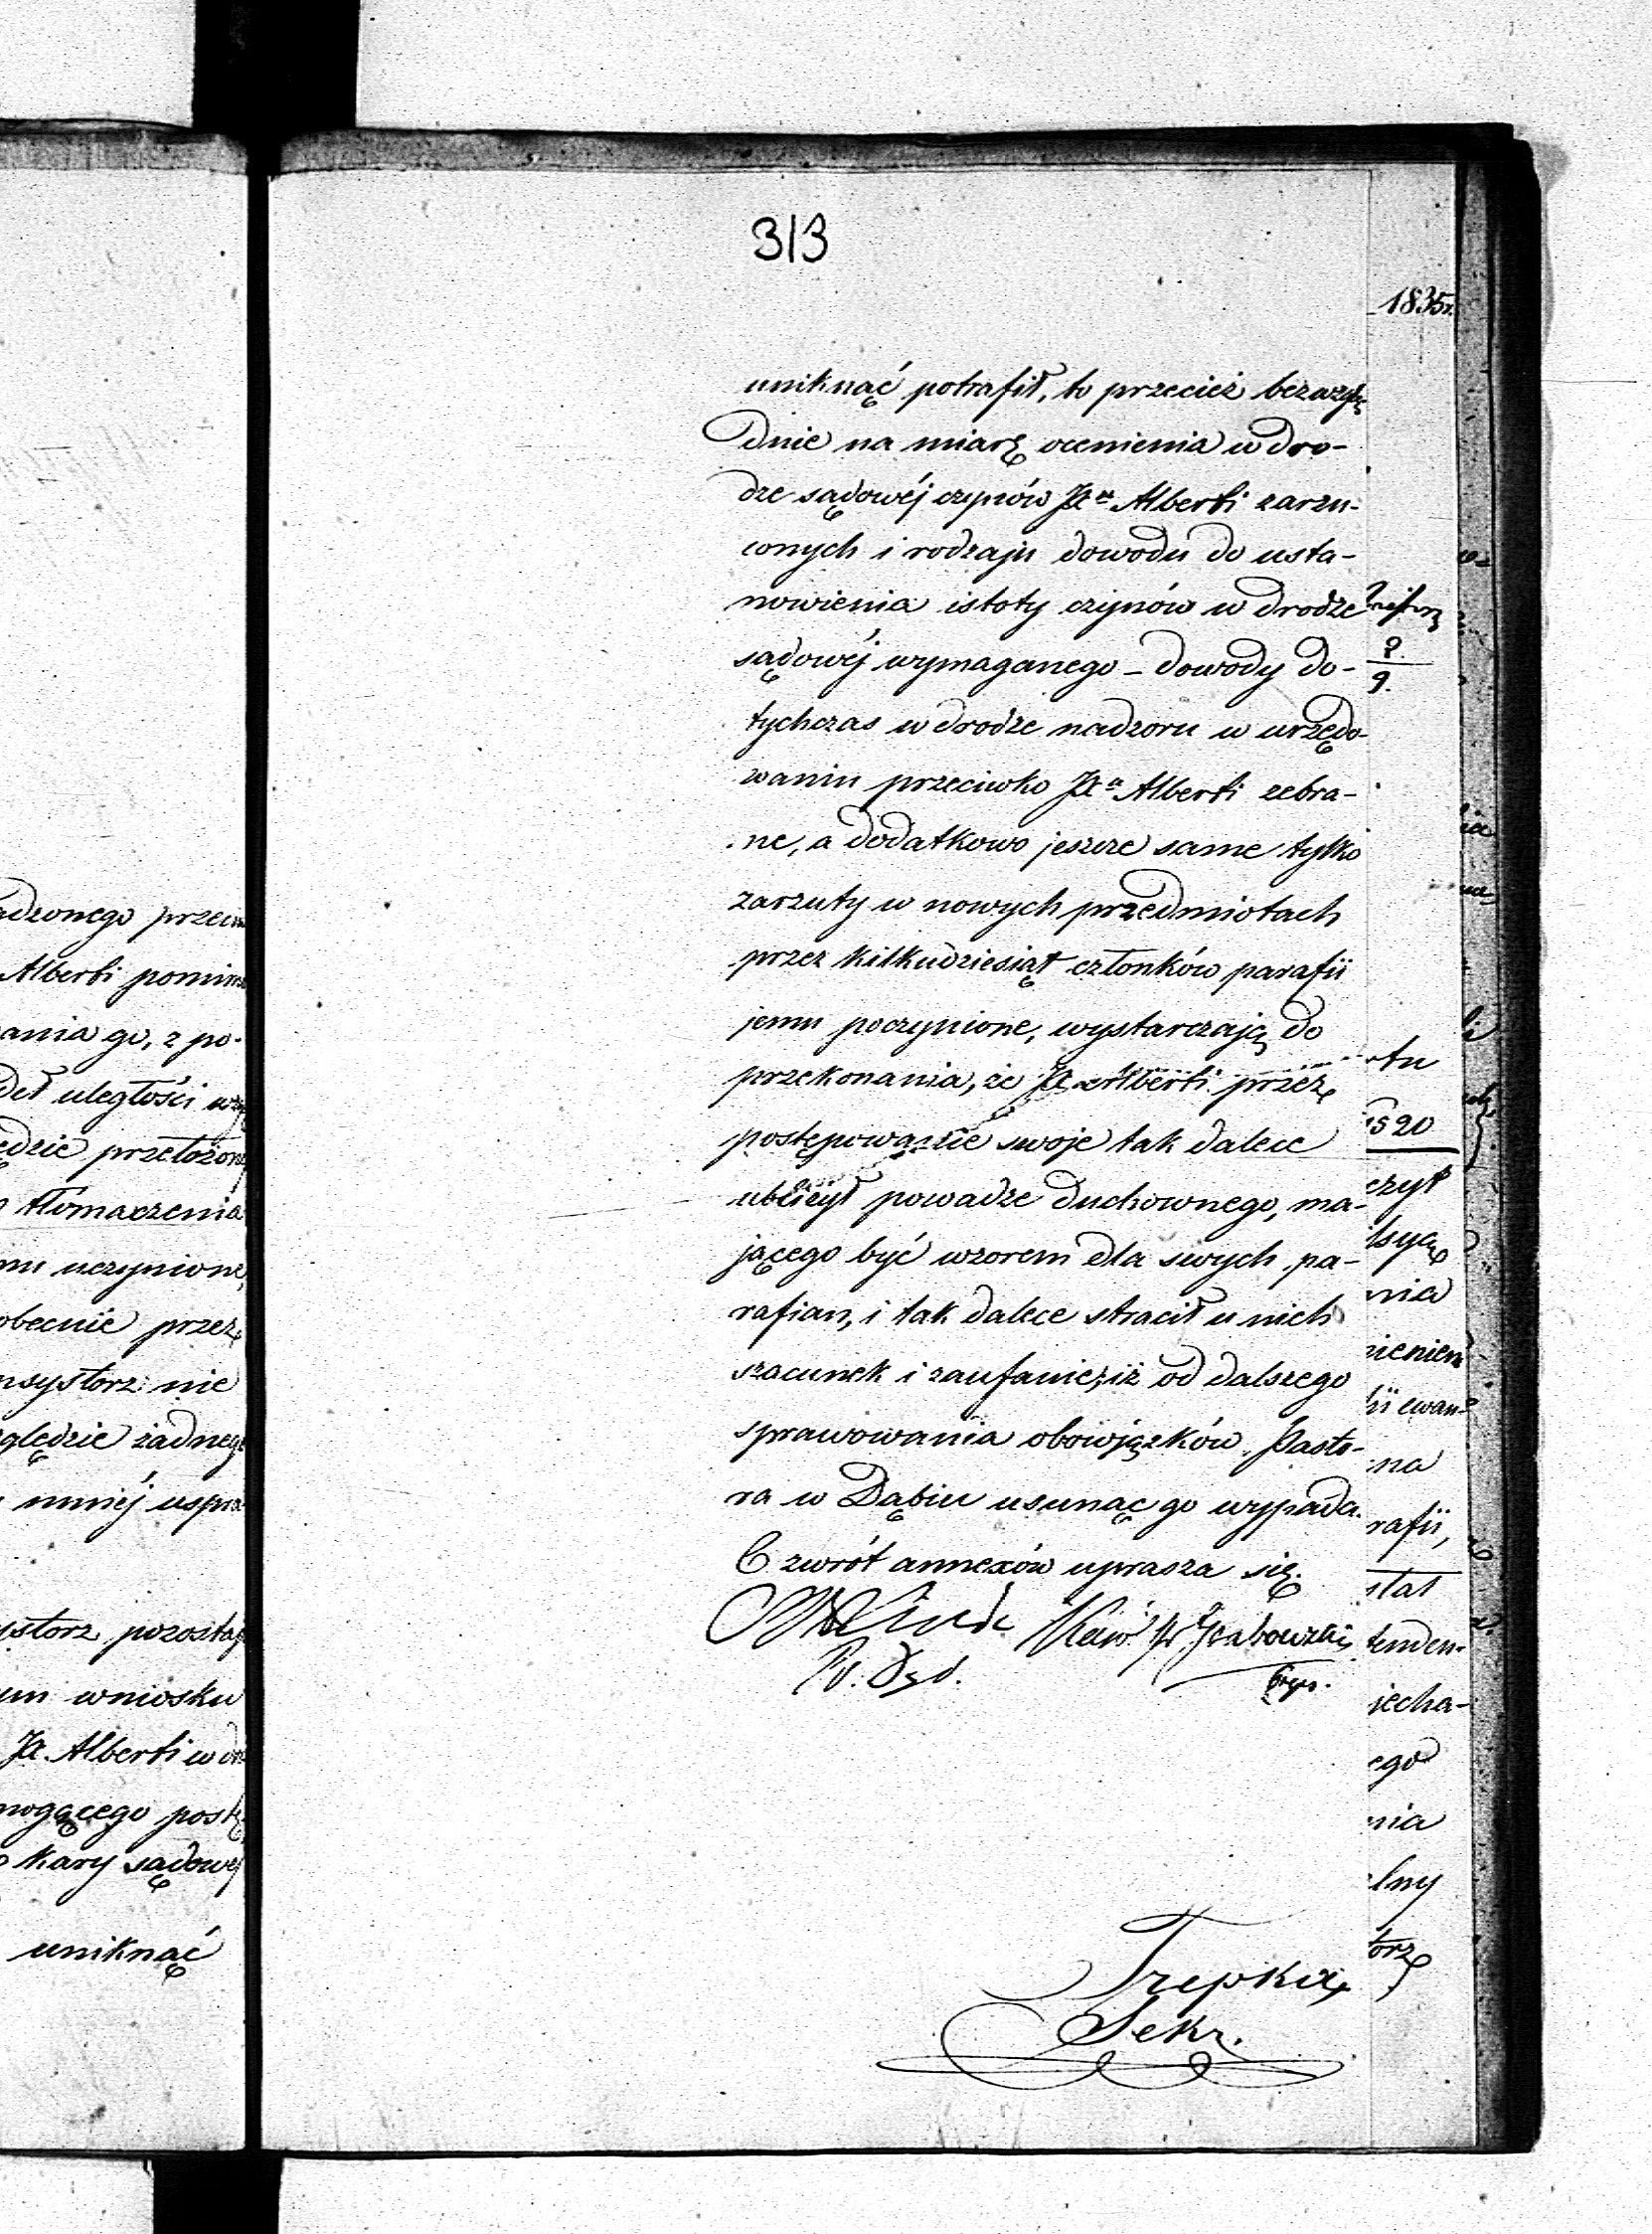 313
1835r.
uniknąć potrafił, to przecież bezwzglę
dnie na miarę ocenienia w dro-
dze sądowéj czynów JX Alberti zarzu-
conych i rodzaju dowodu do usta-
nowienia istoty czynów w drodze
sądowéj wymaganego - dowody do-
tychczas w drodze nadzoru w urzędo-
waniu przeciwko JX Alberti zebra-
ne, a dodatkowo jeszcze same tylko
zarzuty w nowych przedmiotach
przez kilkudziesiąt członków parafii
jemu poczynione, wystarczają do
przekonania, że JX Alberti przez
postępowanie swoje tak dalece
ubliżył powadze duchownego, ma-
jącego być wzorem dla swych pa-
rafian, i tak dalece stracił u nich
szacunek i zaufanie, iż od dalszego
sprawowania obowiązków Pasto-
ra w Dąbiu usunąć go wypada.
O zwrót annexów uprasza się.
Linde
Trepka
Sekr.
dzonego przeciw
Alberti pomimo
ania go, z po-
deł uległości
ędzie przełożone
tłómaczenia
mu uczynione,
obecnie przez
nsystorz nie
ględzie żadnego
mniéj uspra-
ystorz pozostaj
um wniosku
JX. Alberti w
mogącego postę
kary sądowéj
uniknąć
8.
9.
rtu
1520
czył
nia
nieniem
ii ewan-
na
rafii,
stał
tenden-
jecha-
ego
nia
lny
torz